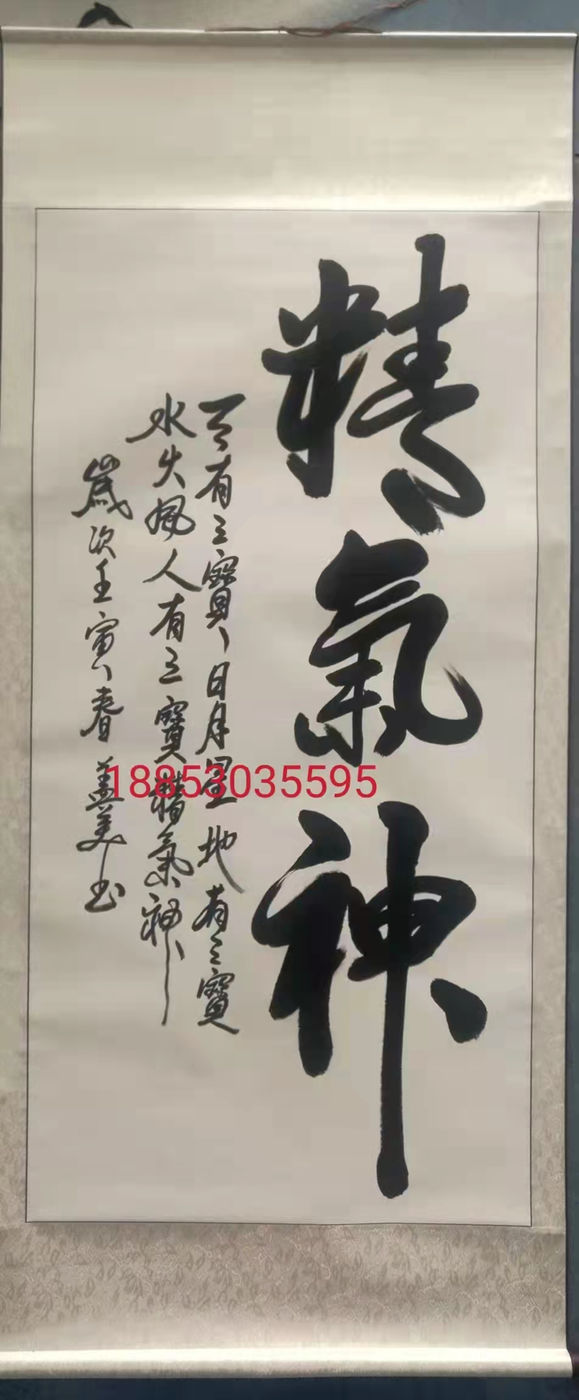 精氣神
天有三寶日月星地有三寶
水火風人有三寶精氣神
歲次壬寅春美书
18853035595